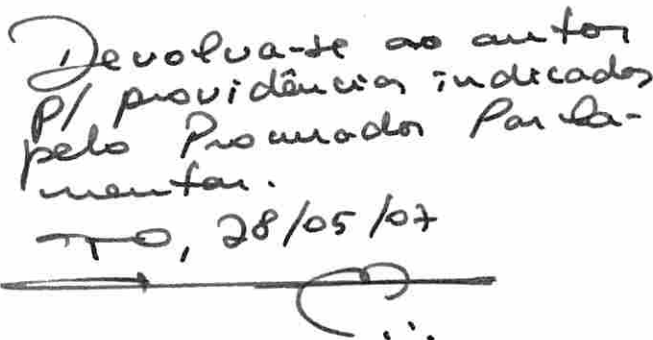 Devolva-se ao autor
p/ providências indicadas
pelo Procurador Parla-
mentar.
28/05/07